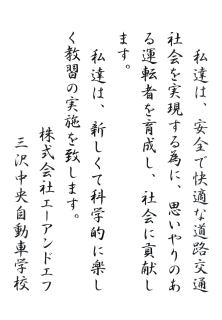 私達は、安全で快適な道路交通
社会を実現する為に、思いやりのあ
る運転者を育成し、社会に貢献し
ます。
私達は、新しくて科学的に楽し
く教習の実施を致します。
株式会社エーアンドエフ
三沢中央自動車学校